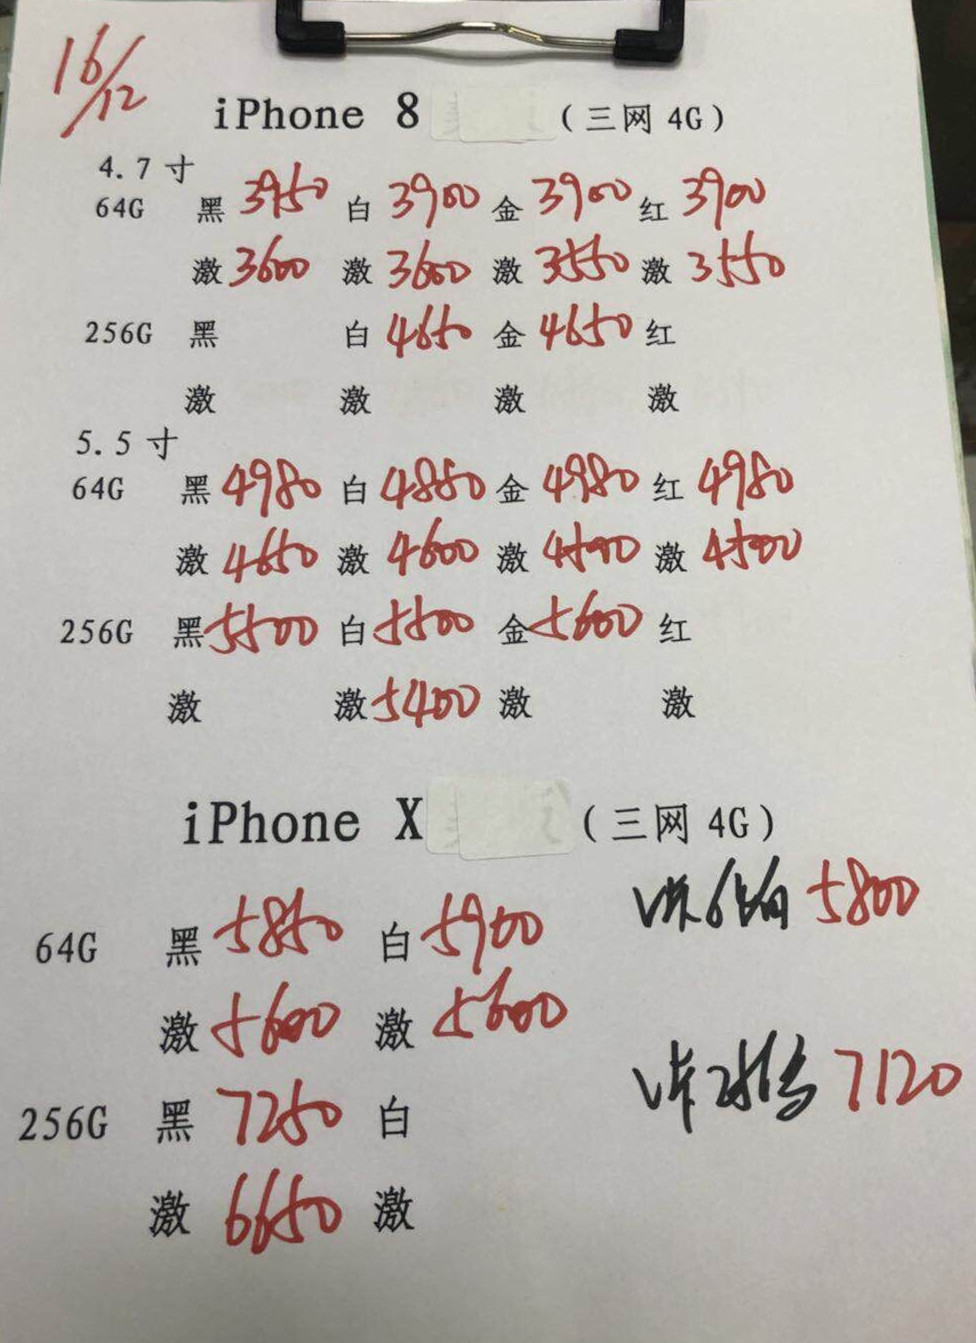 16/12
iPhone 8 (三网4G)
4.7寸
64G 黑 3950 白 3900 金 3900 红 3900
激 3600 激 3600 激 3550 激 3550
256G 黑 白 4650 金 4650 红
激 激 激 激
5.5寸
64G 黑 4980 白 4880 金 4980 红 4980
激 4650 激 4600 激 4500 激 4500
256G 黑 5500 白 5500 金 5600 红
激 激 5400 激 激
iPhone X (三网4G)
5800
64G 黑 5850 白 5900
激 5600 激 5600
7120
256G 黑 7250 白
激 6650 激